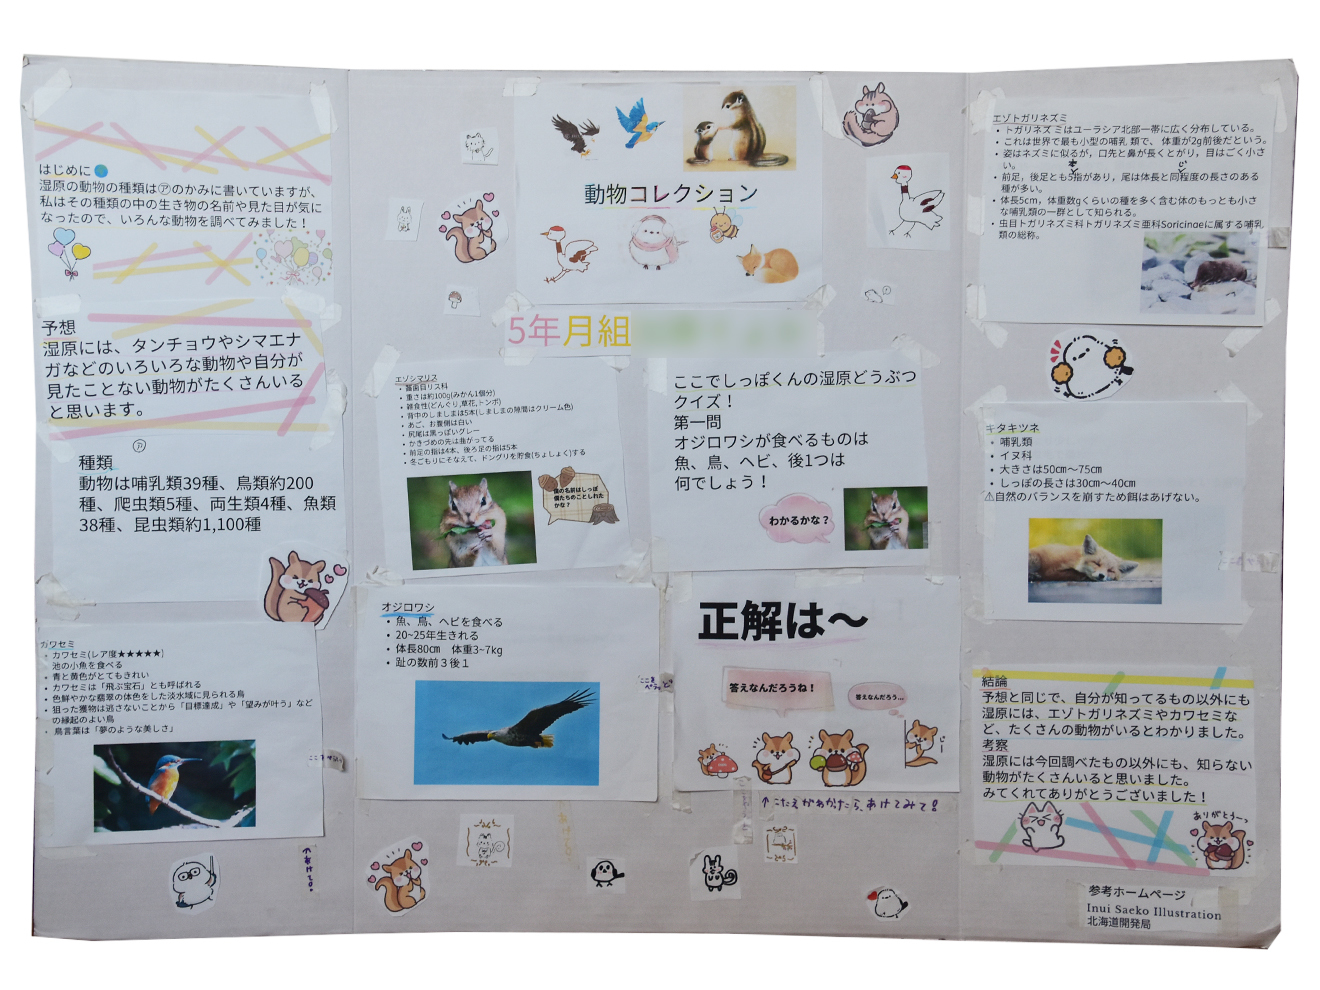 はじめに
湿原の動物の種類は㋐のかみに書いていますが、
私はその種類の中の生き物の名前や見た目が気に
なったので、いろんな動物を調べてみました！
予想
湿原には、タンチョウやシマエナ
ガなどのいろいろな動物や自分が
見たことない動物がたくさんいる
と思います。
㋐
種類
動物は哺乳類39種、鳥類約200
種、爬虫類5種、両生類4種、魚類
38種、昆虫類約1,100種
カワセミ
・ カワセミ(レア度★★★★★)
・ 池の小魚を食べる
・ 青と黄色がとてもきれい
・ カワセミは「飛ぶ宝石」とも呼ばれる
・ 色鮮やかな翡翠の体色をした淡水域に見られる鳥
・ 狙った獲物は逃さないことから「目標達成」や「望みが叶う」など
の縁起のよい鳥
・ 鳥言葉は「夢のような美しさ」
↑あけてね。
動物コレクション
5年月組
エゾシマリス
・ 齧歯目リス科
・ 重さは約100g(みかん1個分)
・ 雑食性(どんぐり,草花,トンボ)
・ 背中のしましまは5本(しましまの隙間はクリーム色)
・ あご、お腹側は白い
・ 尻尾は黒っぽいグレー
・ かぎづめの先は曲がってる
・ 前足の指は4本、後ろ足の指は5本
・ 冬ごもりにそなえて、ドングリを貯食(ちょしょく)する
僕の名前はしっぽ
僕たちのことしれた
かな？
ここでしっぽくんの湿原どうぶつ
クイズ！
第一問
オジロワシが食べるものは
魚、鳥、ヘビ、後1つは
何でしょう！
わかるかな？
オジロワシ
・ 魚、鳥、ヘビを食べる
・ 20~25年生きれる
・ 体長80㎝　体重3~7kg
・ 趾の数前３後１
正解は～
答えなんだろうね！
答えなんだろう…
↑こたえがわかったら、あけてみて！
エゾトガリネズミ
・ トガリネズミはユーラシア北部一帯に広く分布している。
・ これは世界で最も小型の哺乳類で、体重が2g前後だという。
・ 姿はネズミに似るが，口先と鼻が長くとがり，目はごく小さ
い。
・ 前足，後足とも5指があり，尾は体長と同程度の長さのある
種が多い。
・ 体長5cm，体重数gくらいの種を多く含む体のもっとも小さ
な哺乳類の一群として知られる。
・ 虫目トガリネズミ科トガリネズミ亜科Soricinaeに属する哺乳
類の総称。
キタキツネ
・ 哺乳類
・ イヌ科
・ 大きさは50㎝～75㎝
・ しっぽの長さは30㎝～40㎝
⚠自然のバランスを崩すため餌はあげない。
結論
予想と同じで、自分が知ってるもの以外にも
湿原には、エゾトガリネズミやカワセミな
ど、たくさんの動物がいるとわかりました。
考察
湿原には今回調べたもの以外にも、知らない
動物がたくさんいると思いました。
みてくれてありがとうございました！
ありがとうーっ
参考ホームページ
Inui Saeko Illustration
北海道開発局